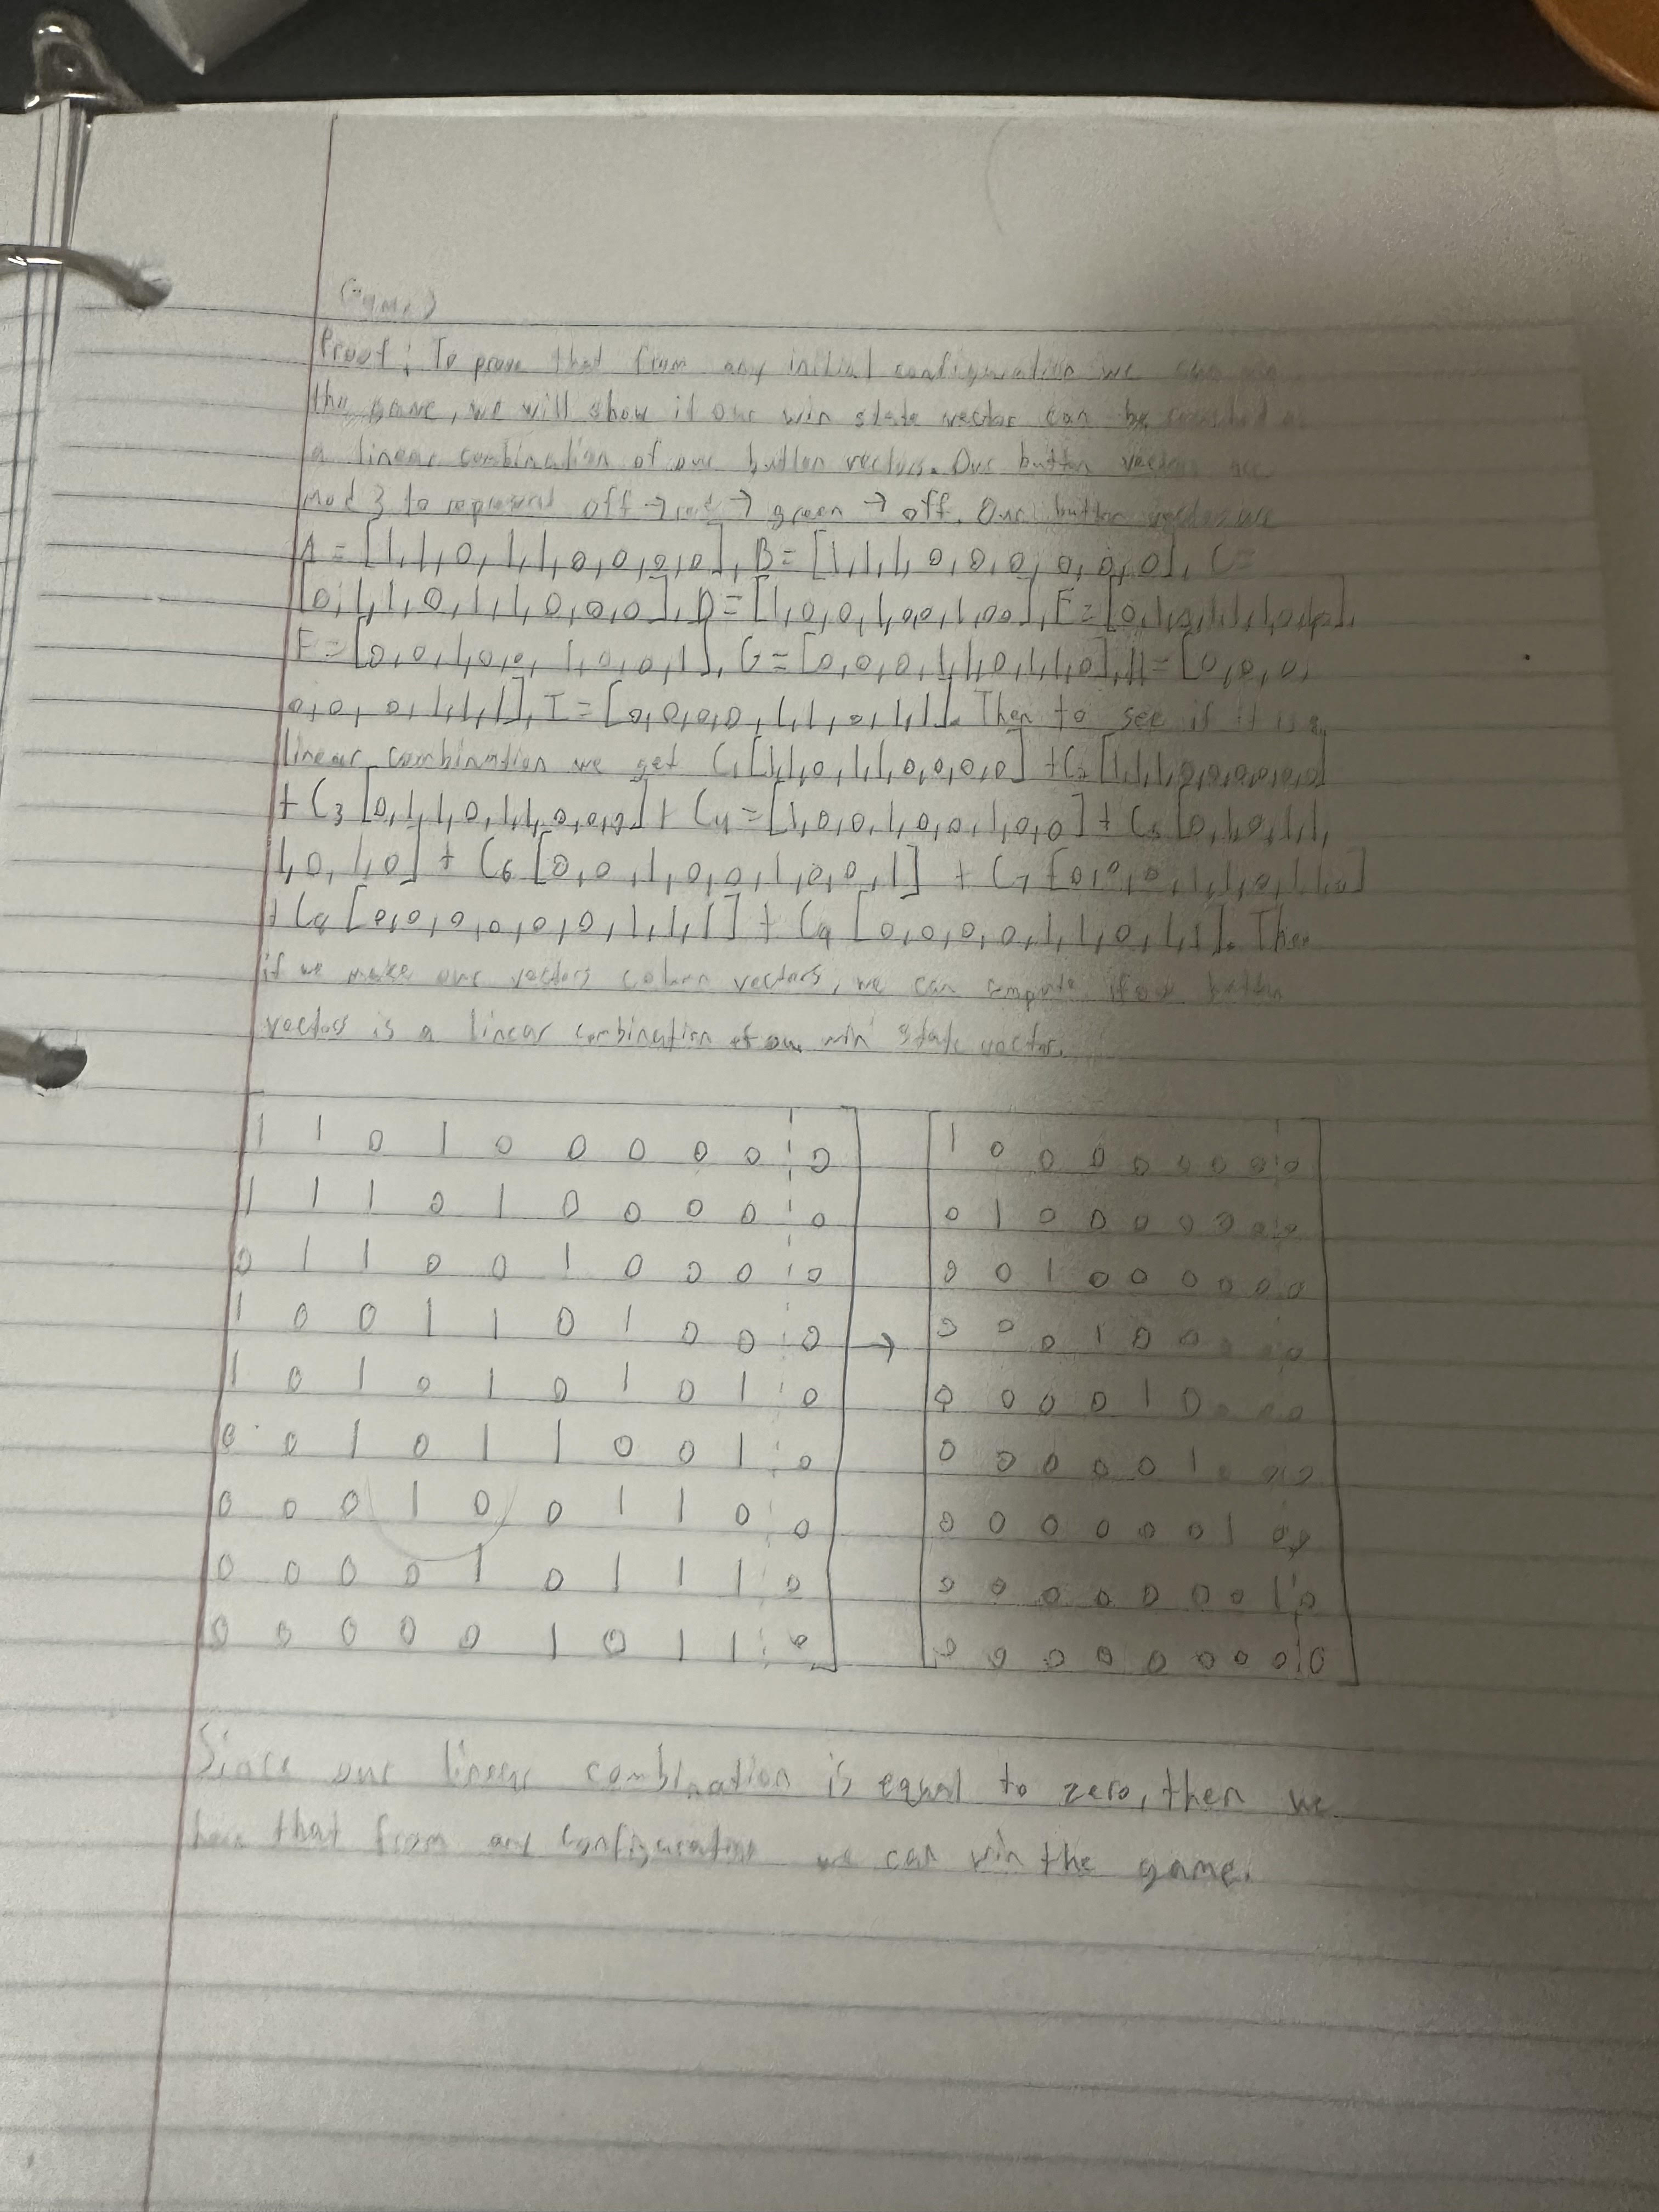 Game 3
Proof: To prove that from any initial configuration we can win
the game, we will show if our win state vector can be reached as
a linear combination of our button vectors. Our button vectors are
mod 3 to represent off → red → green → off. Our button vectors are
A = [1,1,0,1,1,0,0,0,0], B = [1,1,1,0,0,0,0,0,0], C =
[0,1,1,0,1,1,0,0,0], D = [1,0,0,1,0,0,1,0,0], E = [0,1,0,1,1,1,0,1,0],
F = [0,0,1,0,0,1,0,0,1], G = [0,0,0,1,1,0,1,1,0], H = [0,0,0,
0,0,0,1,1,1], I = [0,0,0,0,1,1,0,1,1]. Then to see if it is a
linear combination we get C1[1,1,0,1,1,0,0,0,0] + C2[1,1,1,0,0,0,0,0,0]
+ C3[0,1,1,0,1,1,0,0,0] + C4=[1,0,0,1,0,0,1,0,0] + C5[0,1,0,1,1,
1,0,1,0] + C6[0,0,1,0,0,1,0,0,1] + C7[0,0,0,1,1,0,1,1,0]
+ C8[0,0,0,0,0,0,1,1,1] + C9[0,0,0,0,1,1,0,1,1]. Then
if we make our vectors column vectors, we can compute if our button
vectors is a linear combination of our win state vector.
1 1 0 1 0 0 0 0 0 0 1 0 0 0 0 0 0 0 0
1 1 1 0 1 0 0 0 0 0 0 1 0 0 0 0 0 0 0
0 1 1 0 0 1 0 0 0 0 0 0 1 0 0 0 0 0 0
1 0 0 1 1 0 1 0 0 0 → 0 0 0 1 0 0 0 0 0
1 0 1 0 1 0 1 0 1 0 0 0 0 0 1 0 0 0 0
0 0 1 0 1 1 0 0 1 0 0 0 0 0 0 1 0 0 0
0 0 0 1 0 0 1 1 0 0 0 0 0 0 0 0 1 0 0
0 0 0 0 1 0 1 1 1 0 0 0 0 0 0 0 0 1 0
0 0 0 0 0 1 0 1 1 0 0 0 0 0 0 0 0 0 0
Since our linear combination is equal to zero, then we
have that from any configuration we can win the game.